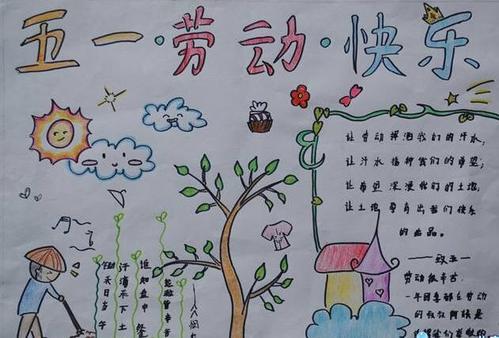 五一·劳动·快乐
让劳动挥洒我们的汗水,
让汗水播种我们的希望;
让希望浸没我们的土地,
让土地孕育出我们快乐
的
——致五一
劳动很辛苦
一年四季都在劳动
的叔叔阿姨是
锄禾日当午
汗滴禾下土
谁知盘中餐
粒粒皆辛苦